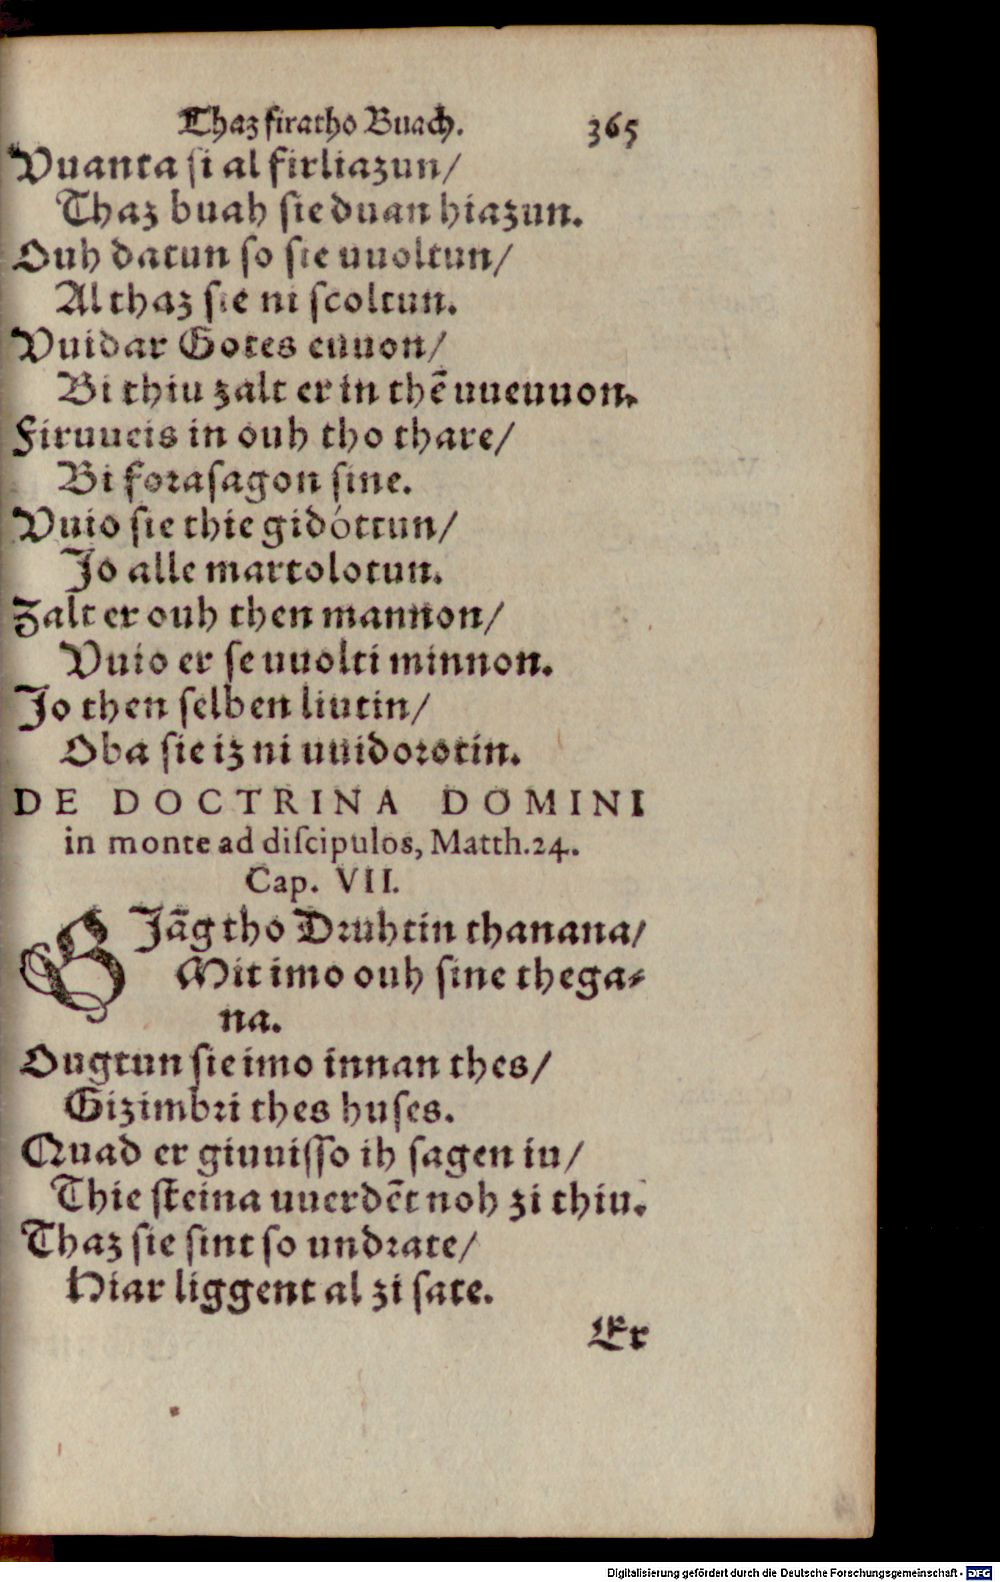 Thaz firatho Buach. 365
Vuanta si al firliazun/
Thaz buah sie duan hiazun.
Ouh datun so sie uuoltun/
Al thaz sie ni scoltun.
Vuidar Gotes euuon/
Bi thiu zalt er in thē uueuuon.
Firuueis in ouh tho thare/
Bi forasagon sine.
Vuio sie thie gidóttun/
Jo alle martolotun.
Zalt er ouh then mannon/
Vuio er se uuolti minnon.
Jo then selben liutin/
Oba sie iz ni uuidorotin.
DE DOCTRINA DOMINI
in monte ad discipulos, Matth. 24.
Cap. VII.
GJāg tho Druhtin thanana/
Mit imo ouh sine thega-
na.
Ougtun sie imo innan thes/
Gizimbri thes huses.
Quad er giuuisso ih sagen iu/
Thie steina uuerdēt noh zi thiu.
Thaz sie sint so undrate/
Hiar liggent al zi sate.
Er
Digitalisierung gefördert durch die Deutsche Forschungsgemeinschaft - DFG